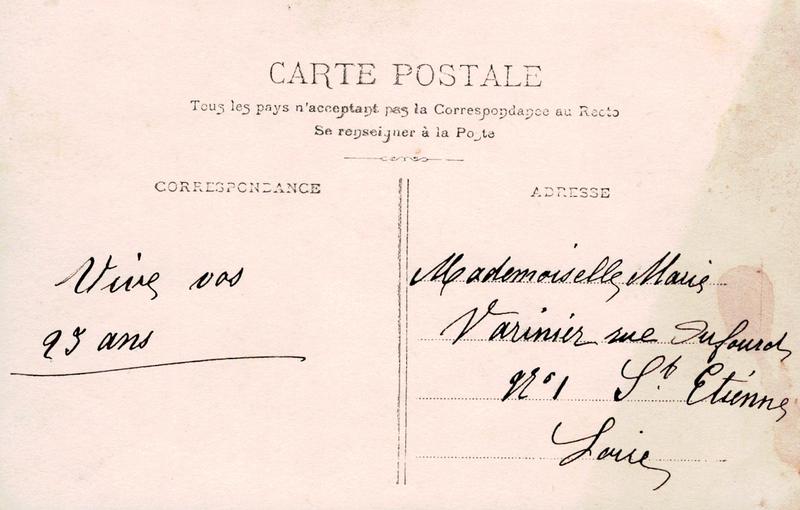 CARTE POSTALE
Tous les pays n'acceptant pas la Correspondance au Recto
Se renseigner à la Poste
CORRESPONDANCE
ADRESSE
Vive vos
23 ans
Mademoiselle Marie
Varinier rue Dufourd
No 1 St Etienne
Loire